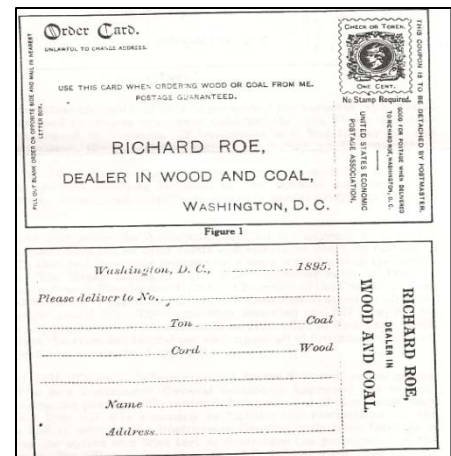 Order Card.
UNLAWFUL TO CHANGE ADDRESS.
FILL OUT BLANK ORDER ON OPPOSITE SIDE AND MAIL IN NEAREST
LETTER BOX.
USE THIS CARD WHEN ORDERING WOOD OR COAL FROM ME.
POSTAGE GUARANTEED.
RICHARD ROE,
DEALER IN WOOD AND COAL,
WASHINGTON, D. C.
CHECK OR TOKEN.
ONE CENT.
No Stamp Required.
THIS COUPON IS TO BE DETACHED BY POSTMASTER.
GOOD FOR POSTAGE WHEN DELIVERED
TO RICHARD ROE, WASHINGTON, D. C.
UNITED STATES ECONOMIC
POSTAGE ASSOCIATION.
Figure 1
Washington, D. C., 1895.
Please deliver to No.
Ton Coal
Cord Wood
Name
Address
RICHARD ROE,
DEALER IN
WOOD AND COAL.